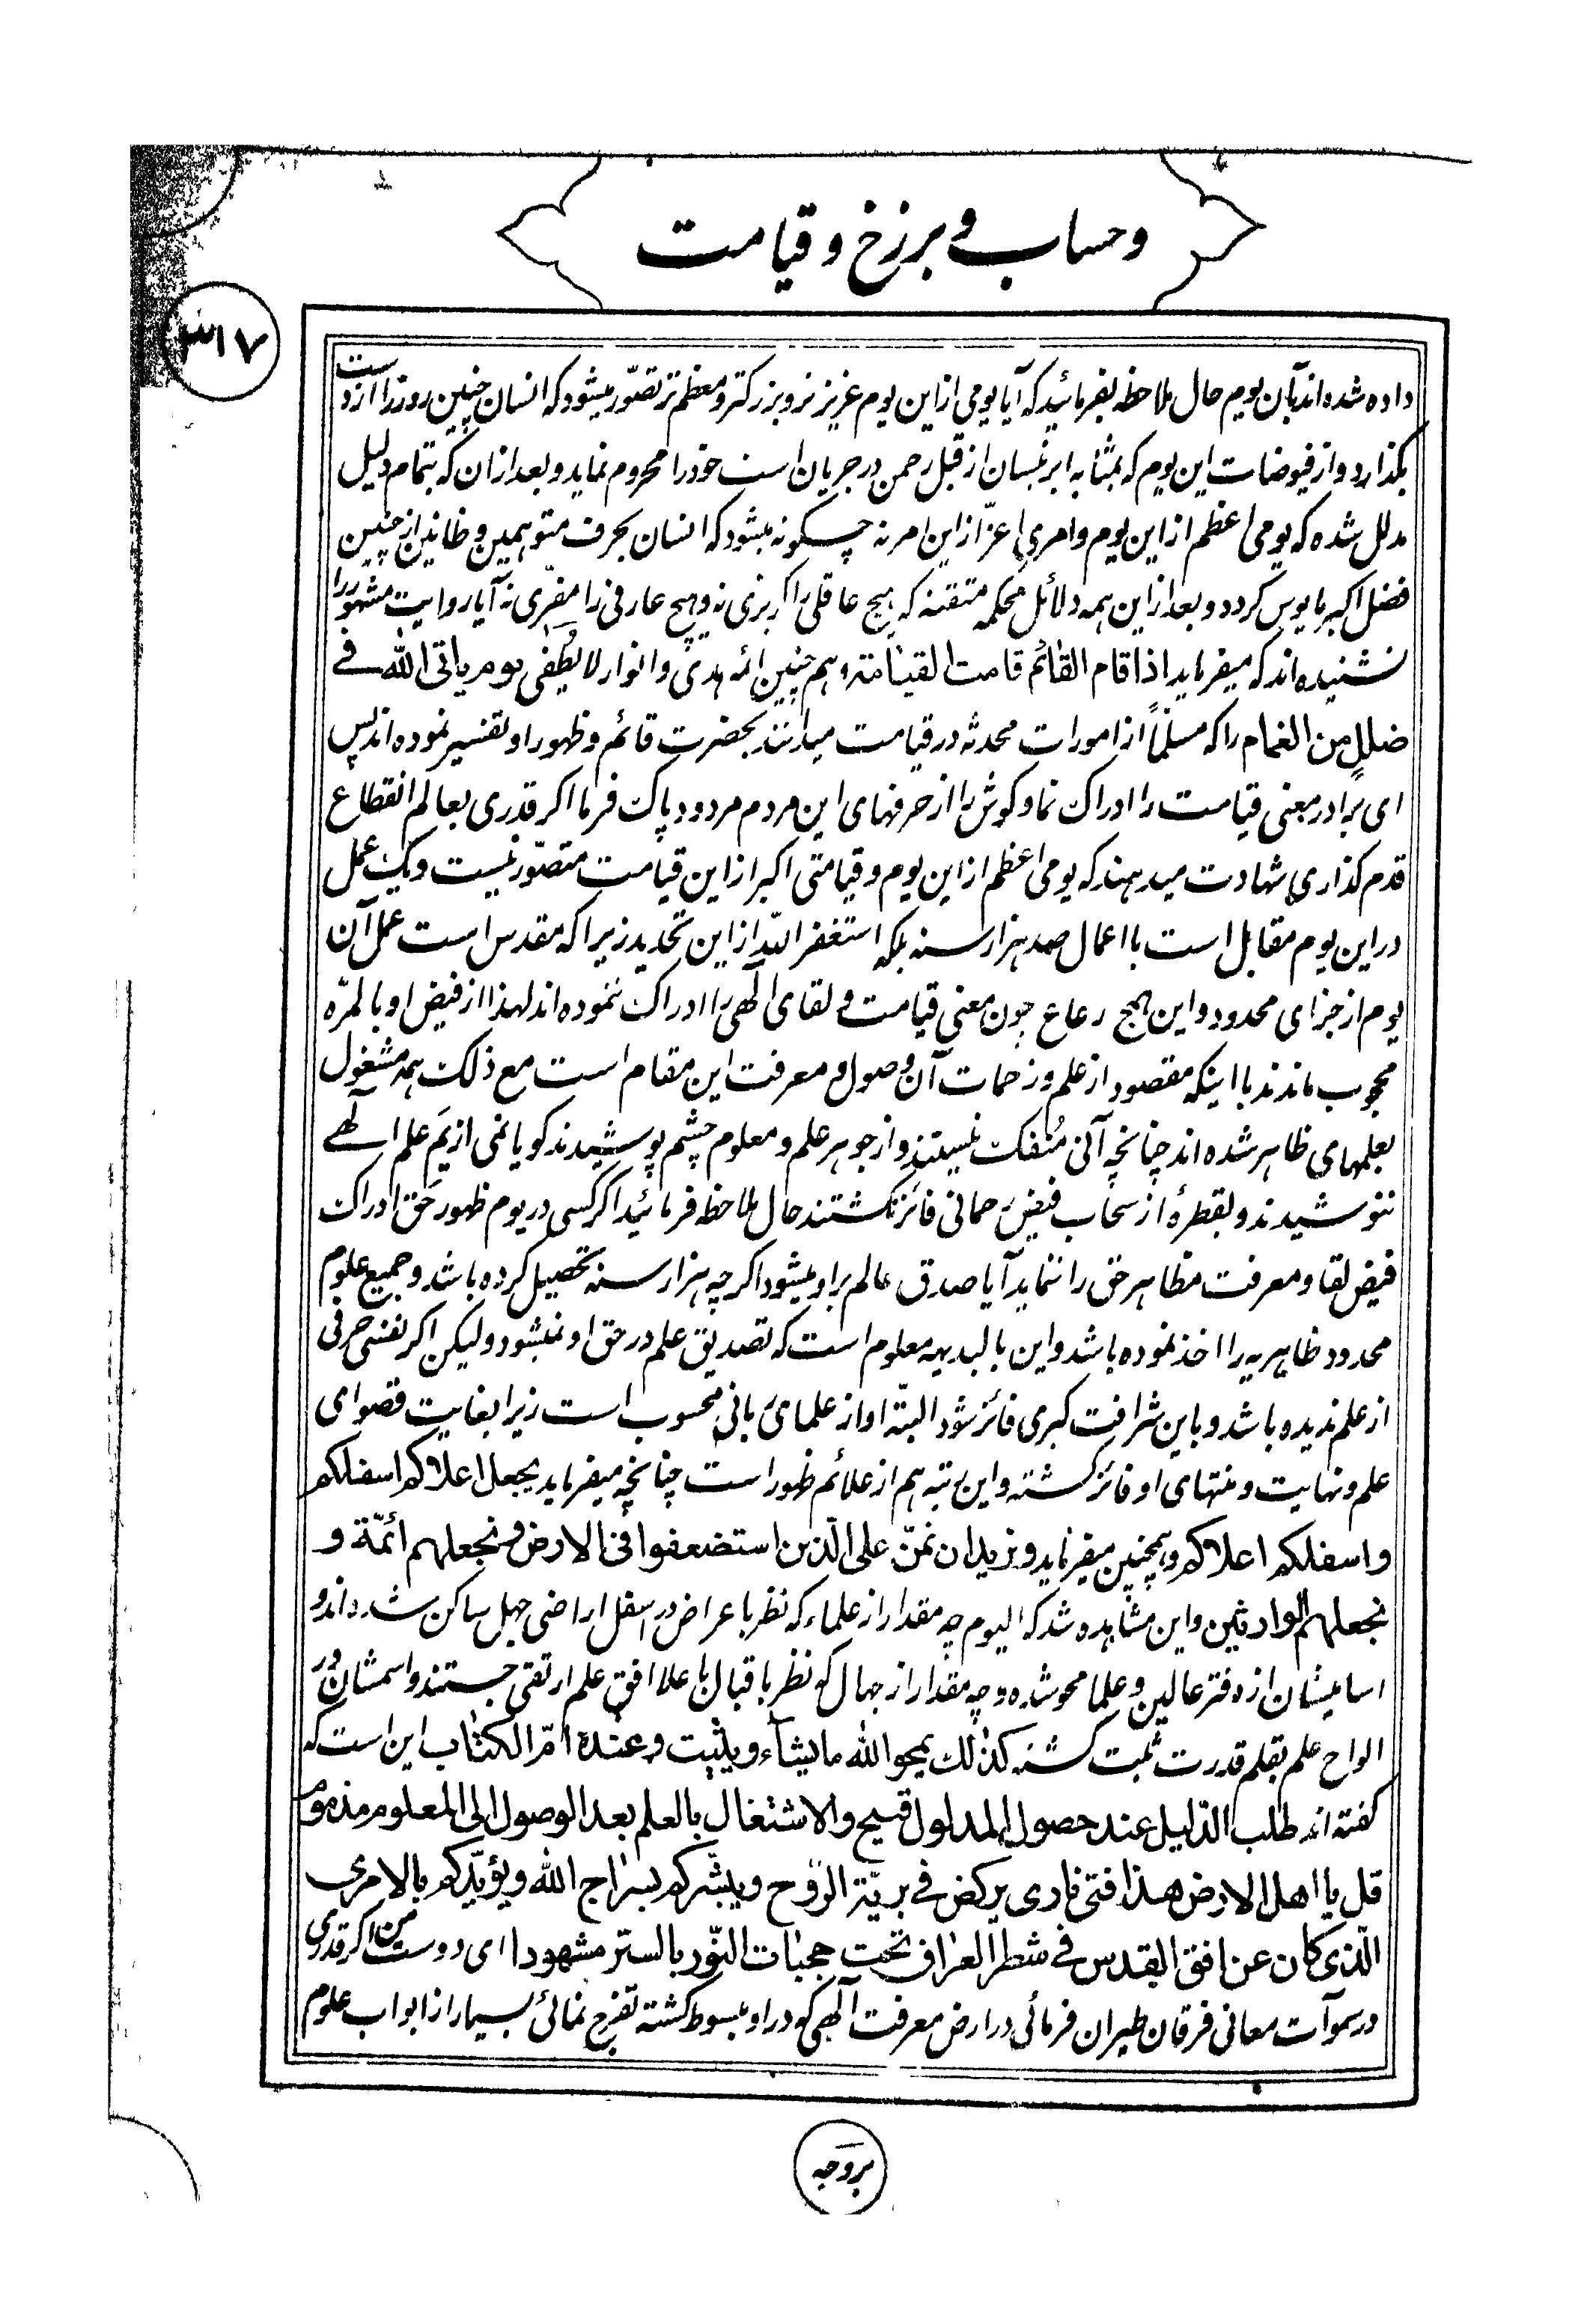 وحساب و برزخ و قیامت
۳۱۷
داده شده اند بآن یوم حال ملاحظه بفرمائید که آیا یومی از این یوم عزیزتر و بزرکتر و معظم تر تصوّر میشود که انسان چنین روز را از دست
بکذارد و از فیوضات این یوم که بمثابه ابر نیسان از قبل رحمن در جریان است خود را محروم نماید و بعد از ان که بتمام دلیل
مدلل شده که یومی اعظم از این یوم و امری اعزّ از این امر نه چکونه میشود که انسان بحرف متوهمین و ظانین از چنین
فضل اکبر مایوس کردد و بعد از این همه دلائل محکمه متقنه که هیچ عاقلی را کریزی نه و هیچ عارفی را مفرّی نه آیا روایت مشهور را
نشنیده اند که میفرماید اذا قام القائم قامت القیامة و هم چنین ائمه هدی و انوار لا یطفی یوم یاتی الله فے
ضللٍ من الغمام را که مسلماً از امورات محدثه در قیامت میدانند بحضرت قائم و ظهور او تفسیر نموده اند پس
ای برادر معنی قیامت را ادراک نما و کوش را از حرفهای این مردم مردود پاک فرما اکر قدری بعالم انقطاع
قدم کذاری شهادت میدهند که یومی اعظم از این یوم و قیامتی اکبر از این قیامت متصوّر نیست و یک عمل
در این یوم مقابل است با اعمال صد هزار سنه بلکه استغفر اللّه از این تحدید زیرا که مقدس است عمل آن
یوم از جزای محدود و این همج رعاع چون معنی قیامت و لقای الهی را ادراک ننموده اند لهذا از فیض او بالمرّه
محجوب ماندند با اینکه مقصود از علم و زحمات آن وصول و معرفت این مقام است مع ذلک همه مشغول
بعلمهای ظاهر شده اند چنانچه آنی مُنفک نیستند و از جوهر علم و معلوم چشم پوشیدند کویا نمی از یَم علم الهے
ننوشیدند و بقطرهٔ از سحاب فیض رحمانی فائز نکشتند حال ملاحظه فرمائید اکر کسی در یوم ظهور حق ادراک
فیض لقا و معرفت مظاهر حق را ننماید آیا صدق عالم بر او میشود اکر چه هزار سنه تحصیل کرده باشد و جمیع علوم
محدود ظاهریه را اخذ نموده باشد و این بالبدیهه معلوم است که تصدیق علم در حق او نمیشود ولیکن اکر نفسی حرفی
از علم ندیده باشد و باین شرافت کبری فائز شود البتّه او از علمای ربانی محسوب است زیرا بغایت قصوای
علم و نهایت و منتهای او فائز کشته و این رتبه هم از علائم ظهور است چنانچه میفرماید یجعل اعلاکم اسفلکم
و اسفلکم اعلاکم و همچنین میفرماید و نرید ان نمنّ علی الّذین استضعفوا فی الارض و نجعلهم ائمّة و
نجعلهم الوارثین و این مشاهده شد که الیوم چه مقدار از علماء که نظر باعراض در اسفل اراضی جهل ساکن شده اند و
اسامیشان از دفتر عالین و علما محو شده و چه مقدار از جهال که نظر باقبال باعلا افق علم ارتقی جستند و اسمشان در
الواح علم بقلم قدرت ثبت کشته کذٰلک یمحو الله ما یشآء و یثبت و عنده امّ الکتاب این است که
کفته اند طلب الدّلیل عند حصول المدلول قبیح و الاشتغال بالعلم بعد الوصول الی المعلوم مذموم
قل یا اهل الارض هذا فتی ناری یرکض فی بریّة الرّوح و یبشّرکم بسراج الله و یؤیّدکم بالامر
الّذی کان عن افق القدس فی شطر العراق تحت حجبات النّور بالستر مشهودا ای دوست من اکر قدری
در سموآت معانی فرقان طیران فرمائی و در ارض معرفت الهی که در او مبسوط کشته تفرج نمائی بسیار از ابواب علوم
بروجه